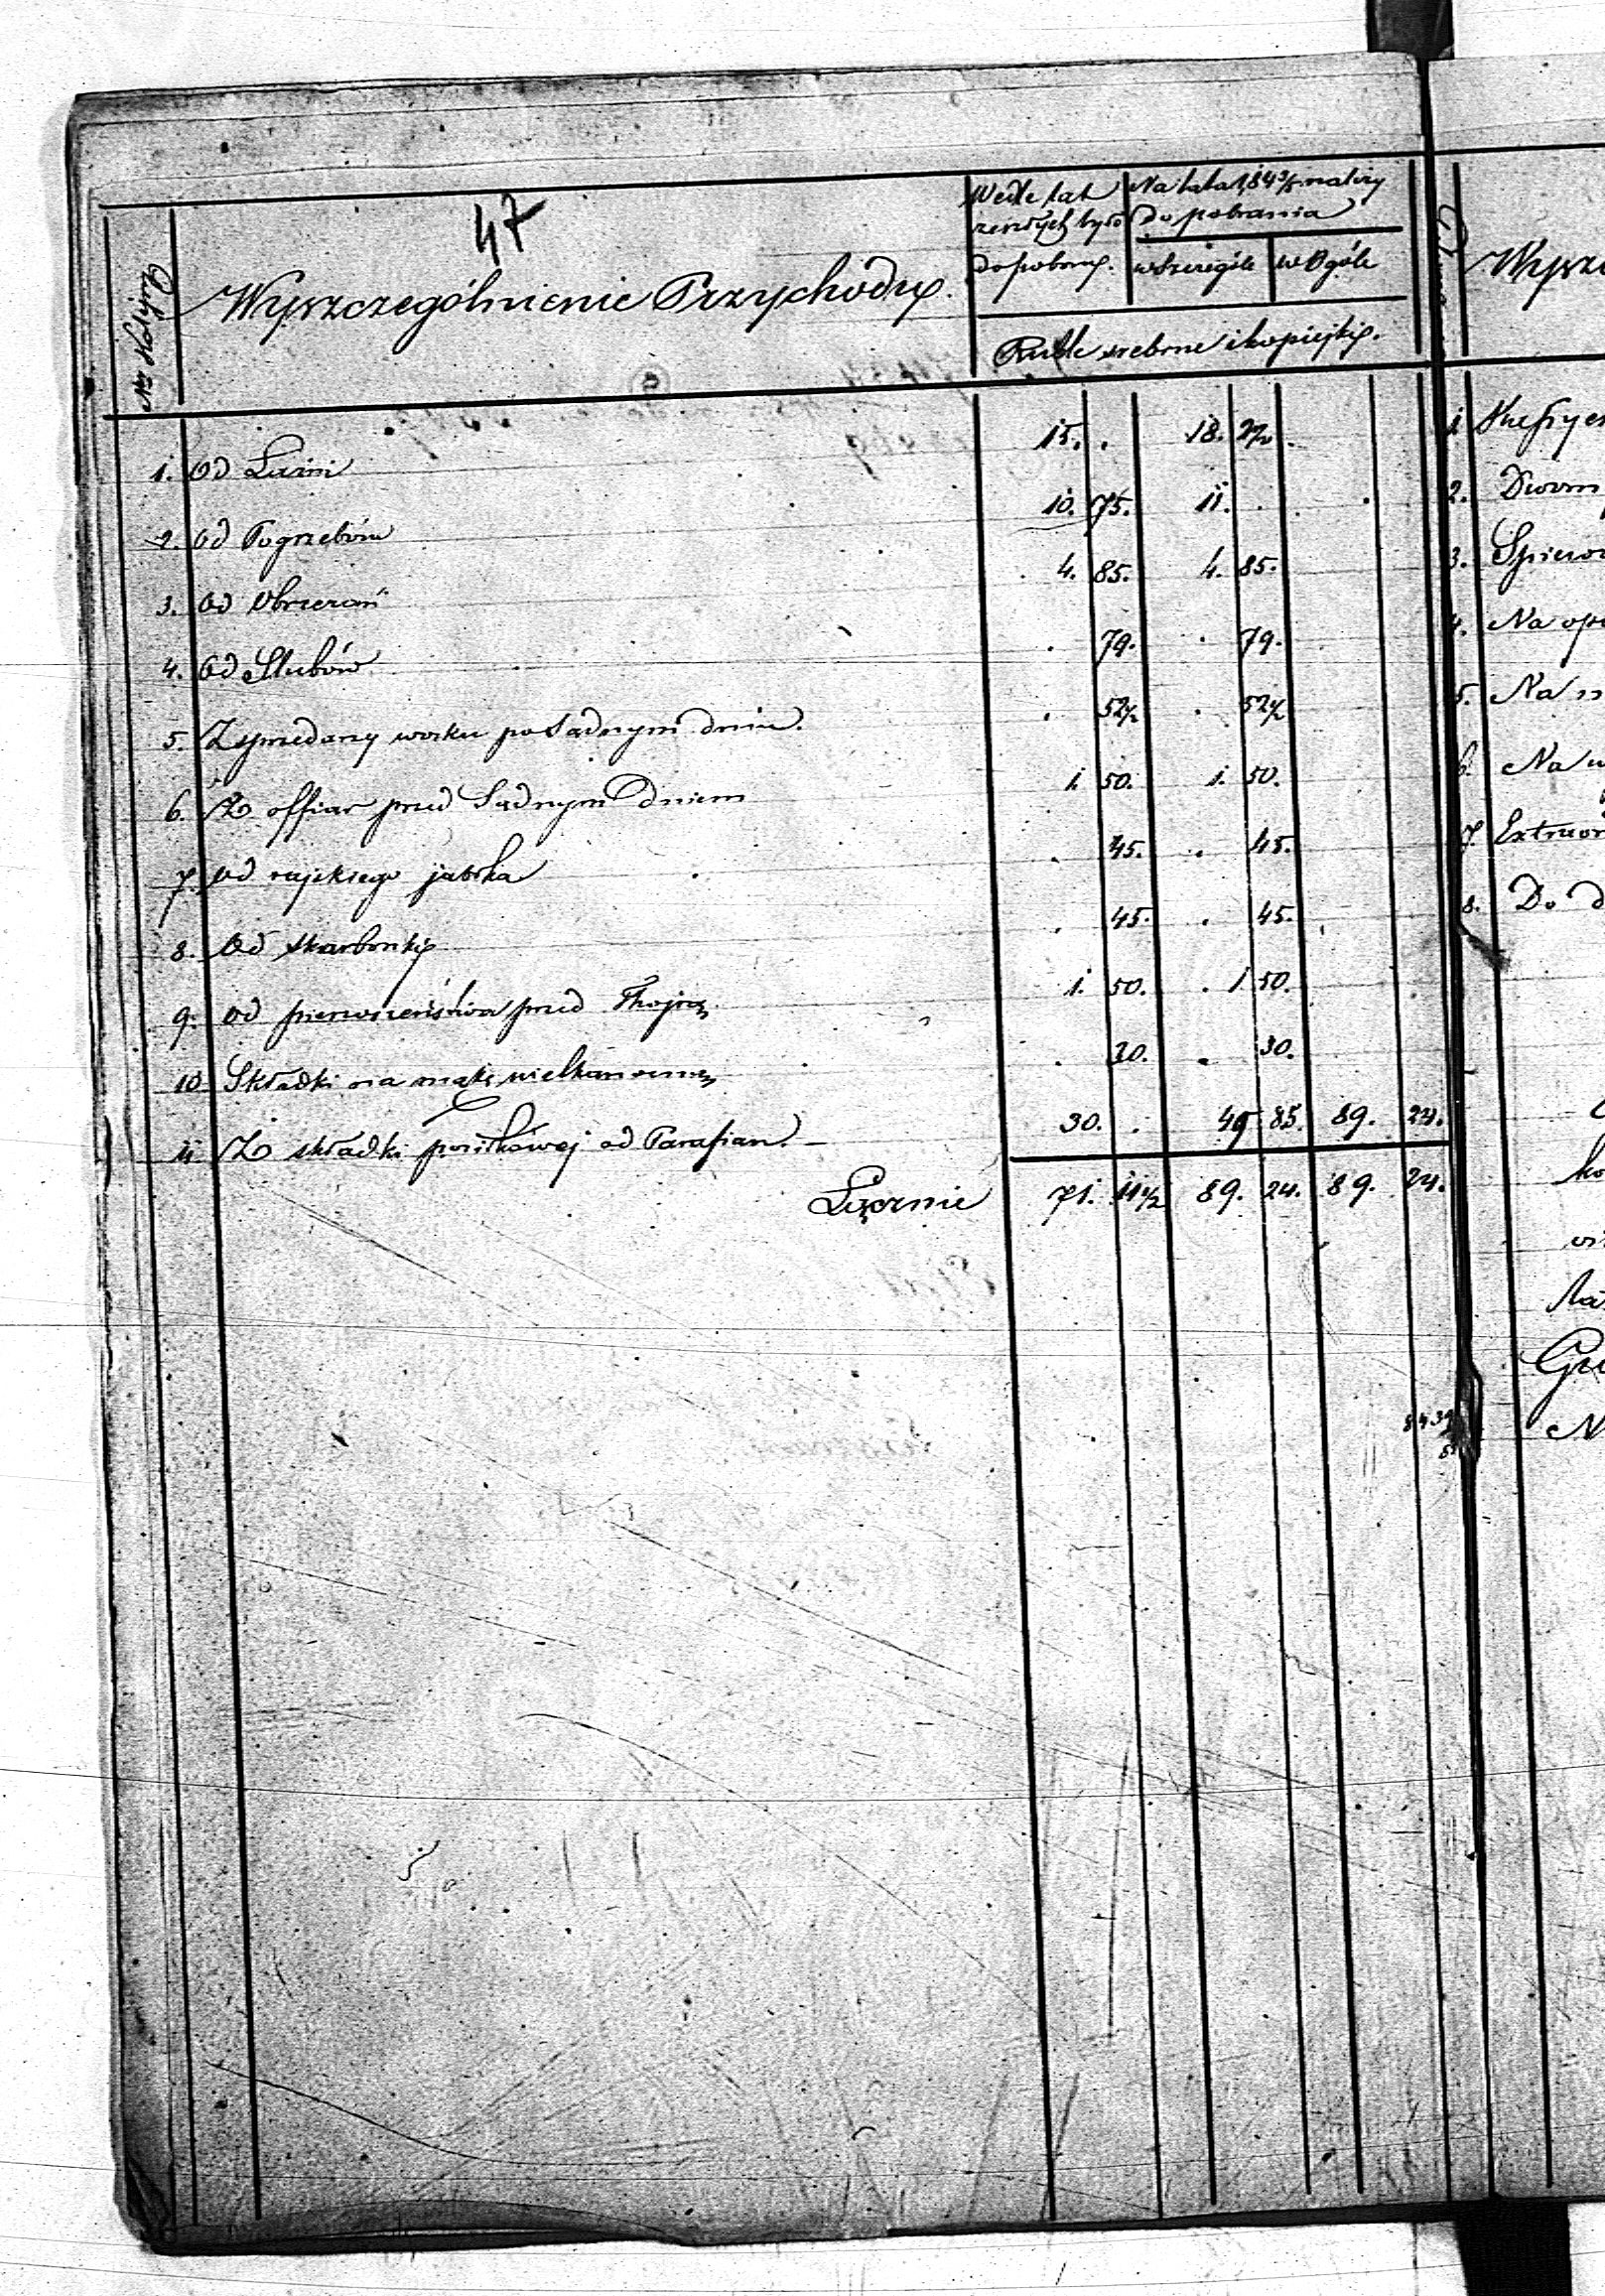 47
Nr Kolejny
Wyszczególnienie Przychody.
Wedle lat zeszłych było do pobory.
Na lata 184 3/5 należy do pobrania
w Szczególe w Ogóle
Ruble srebrne i kopiejki.
1. Od Łaźni 15. . 18.
2. Od Pogrzebów 10. 75. 11. .
3. Od Obrzezań 4. 85. 4. 85.
4. Od Slubów . 79. . 79.
5. Z sprzedarzy wosku po Sądnym dniu. . 52½ . 52½
6. Z offiar przed Sądnym Dniem 1. 50. 1. 50.
7. Od rajskiego jabłka . 45. . 45.
8. Od skarbonki . 45. . 45.
9. Od pierwszeństwa przed Thojrą 1. 50. . 1 50.
10 Składki na mąkę wielkanocną . 30. . 30.
11 Z składki posiłkowej od Parafian. 30. . 49 85. 89. 24.
Łącznie 71. 11½ 89. 24. 89. 24.
Wyszc
1
2.
3.
4. Na op
5. Na
6. Na
7.
8. Do d